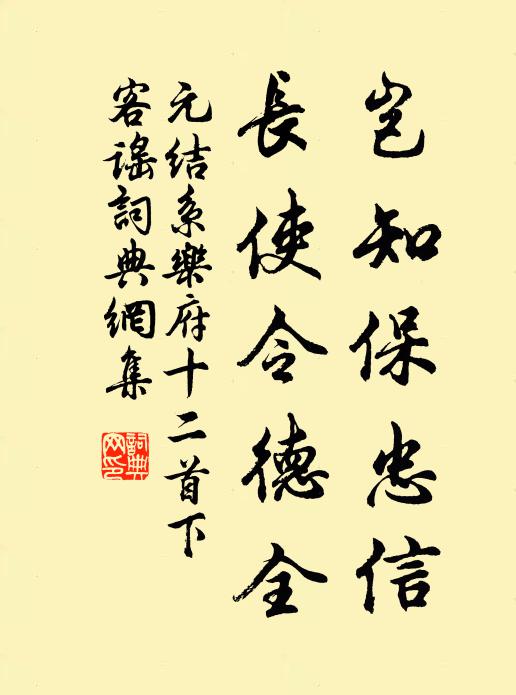 豈知保忠信
長使令德全
元結系樂府十二首下
客謠詞典網集
詞典
网印